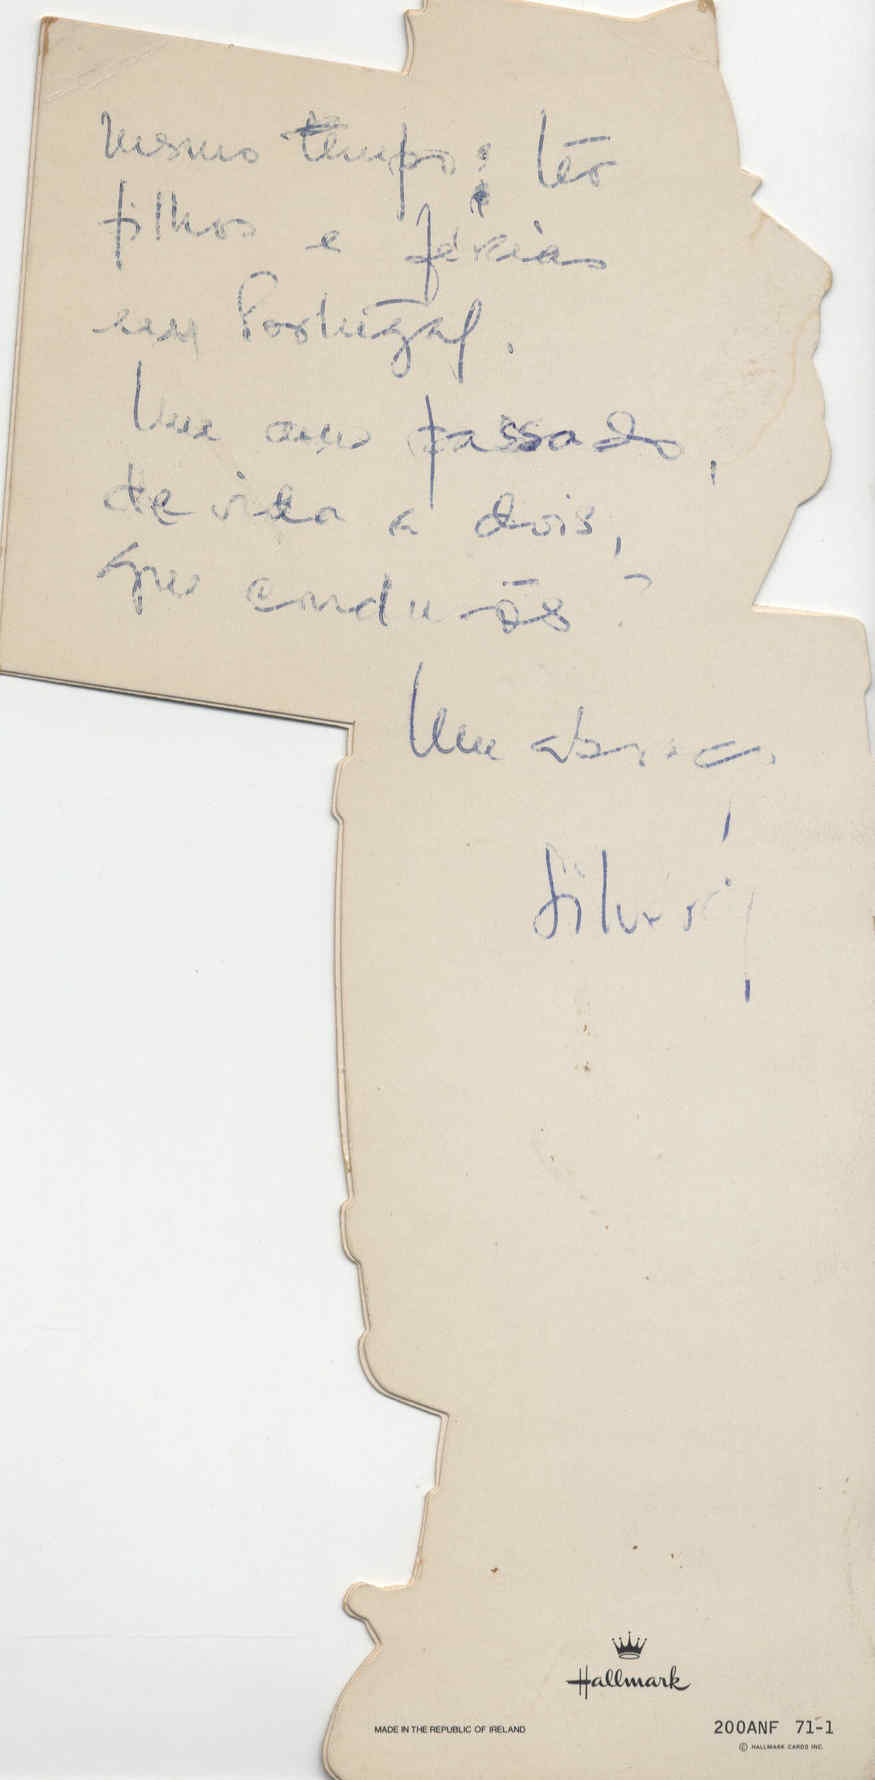 mesmo tempo: ter
filhos e férias
em Portugal.
Um ano passado,
de vida a dois,
que conclusões?
Um abraço,
Hallmark
MADE IN THE REPUBLIC OF IRELAND
200ANF 71-1
© HALLMARK CARDS INC.